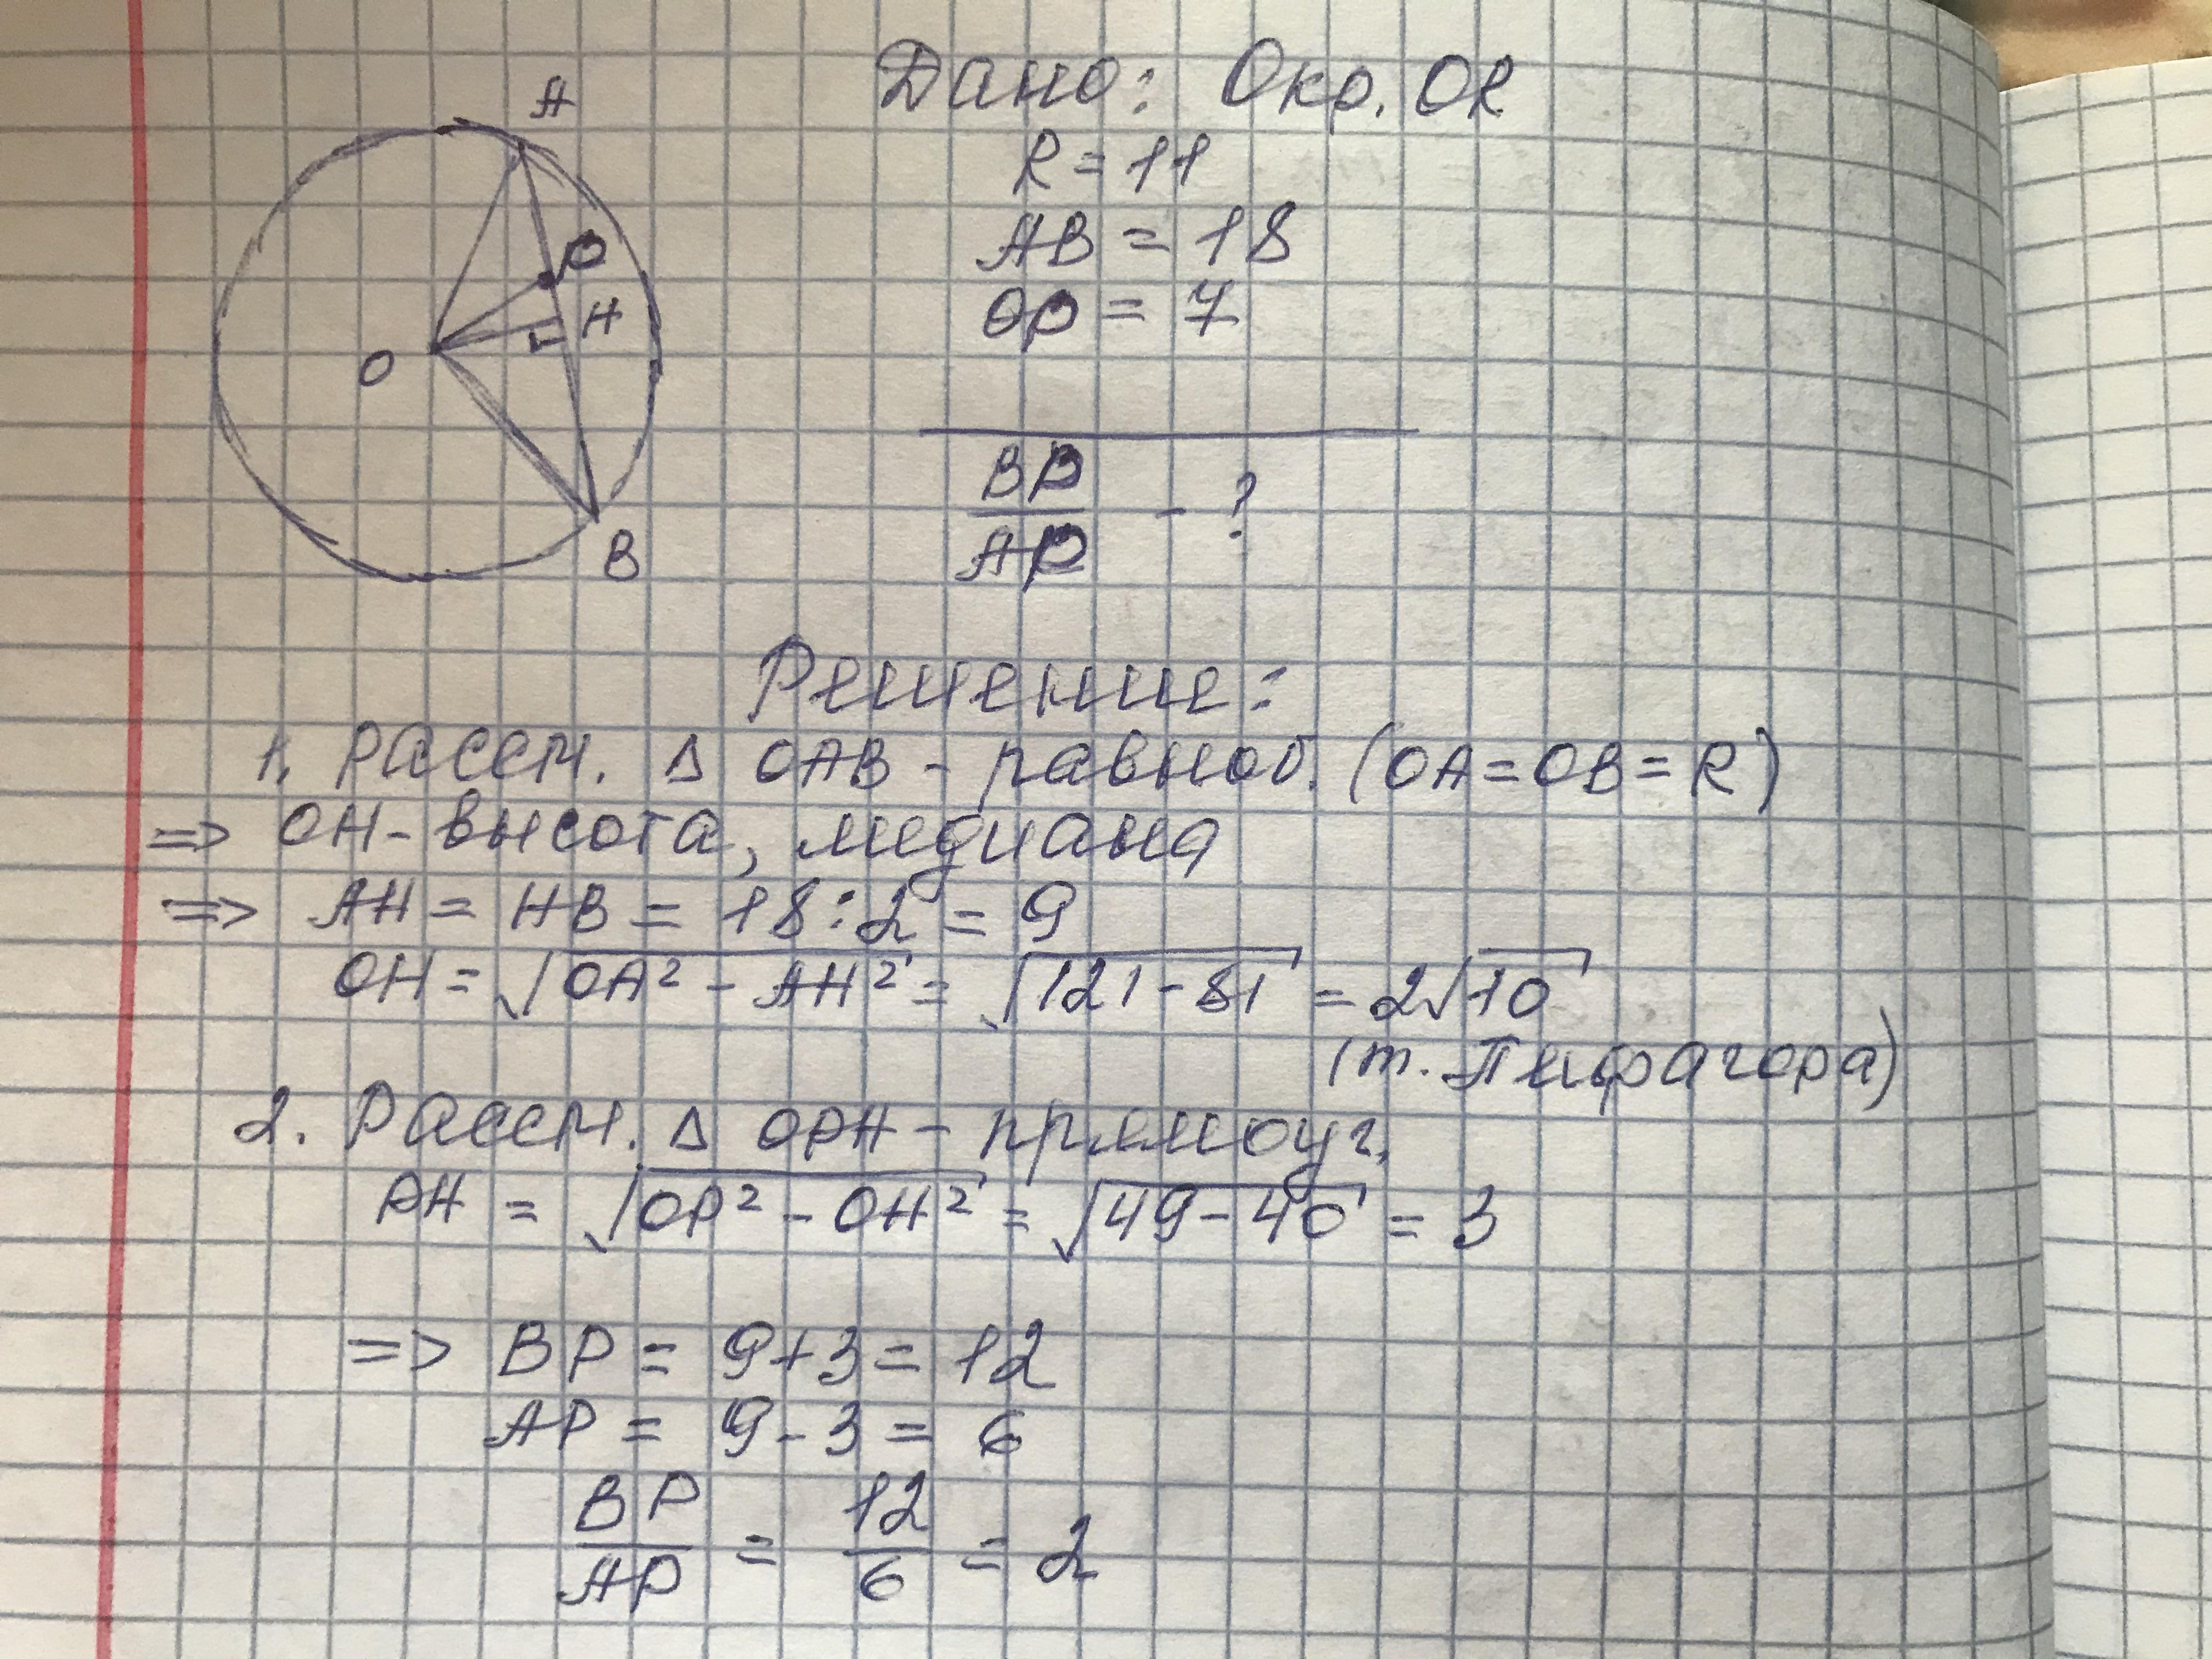 A
P
H
O
B
Дано: Окр. OR
R = 11
AB = 18
OP = 7
BP
AP
- ?
Решение:
1. Рассм. Δ OAB - равноб. (OA = OB = R)
=> OH - высота, медиана
=> AH = HB = 18 : 2 = 9
OH = √(OA² - AH²) = √(121 - 81) = 2√10
(т. Пифагора)
2. Рассм. Δ OPH - прямоуг.
PH = √(OP² - OH²) = √(49 - 40) = 3
=> BP = 9 + 3 = 12
AP = 9 - 3 = 6
BP/AP = 12/6 = 2